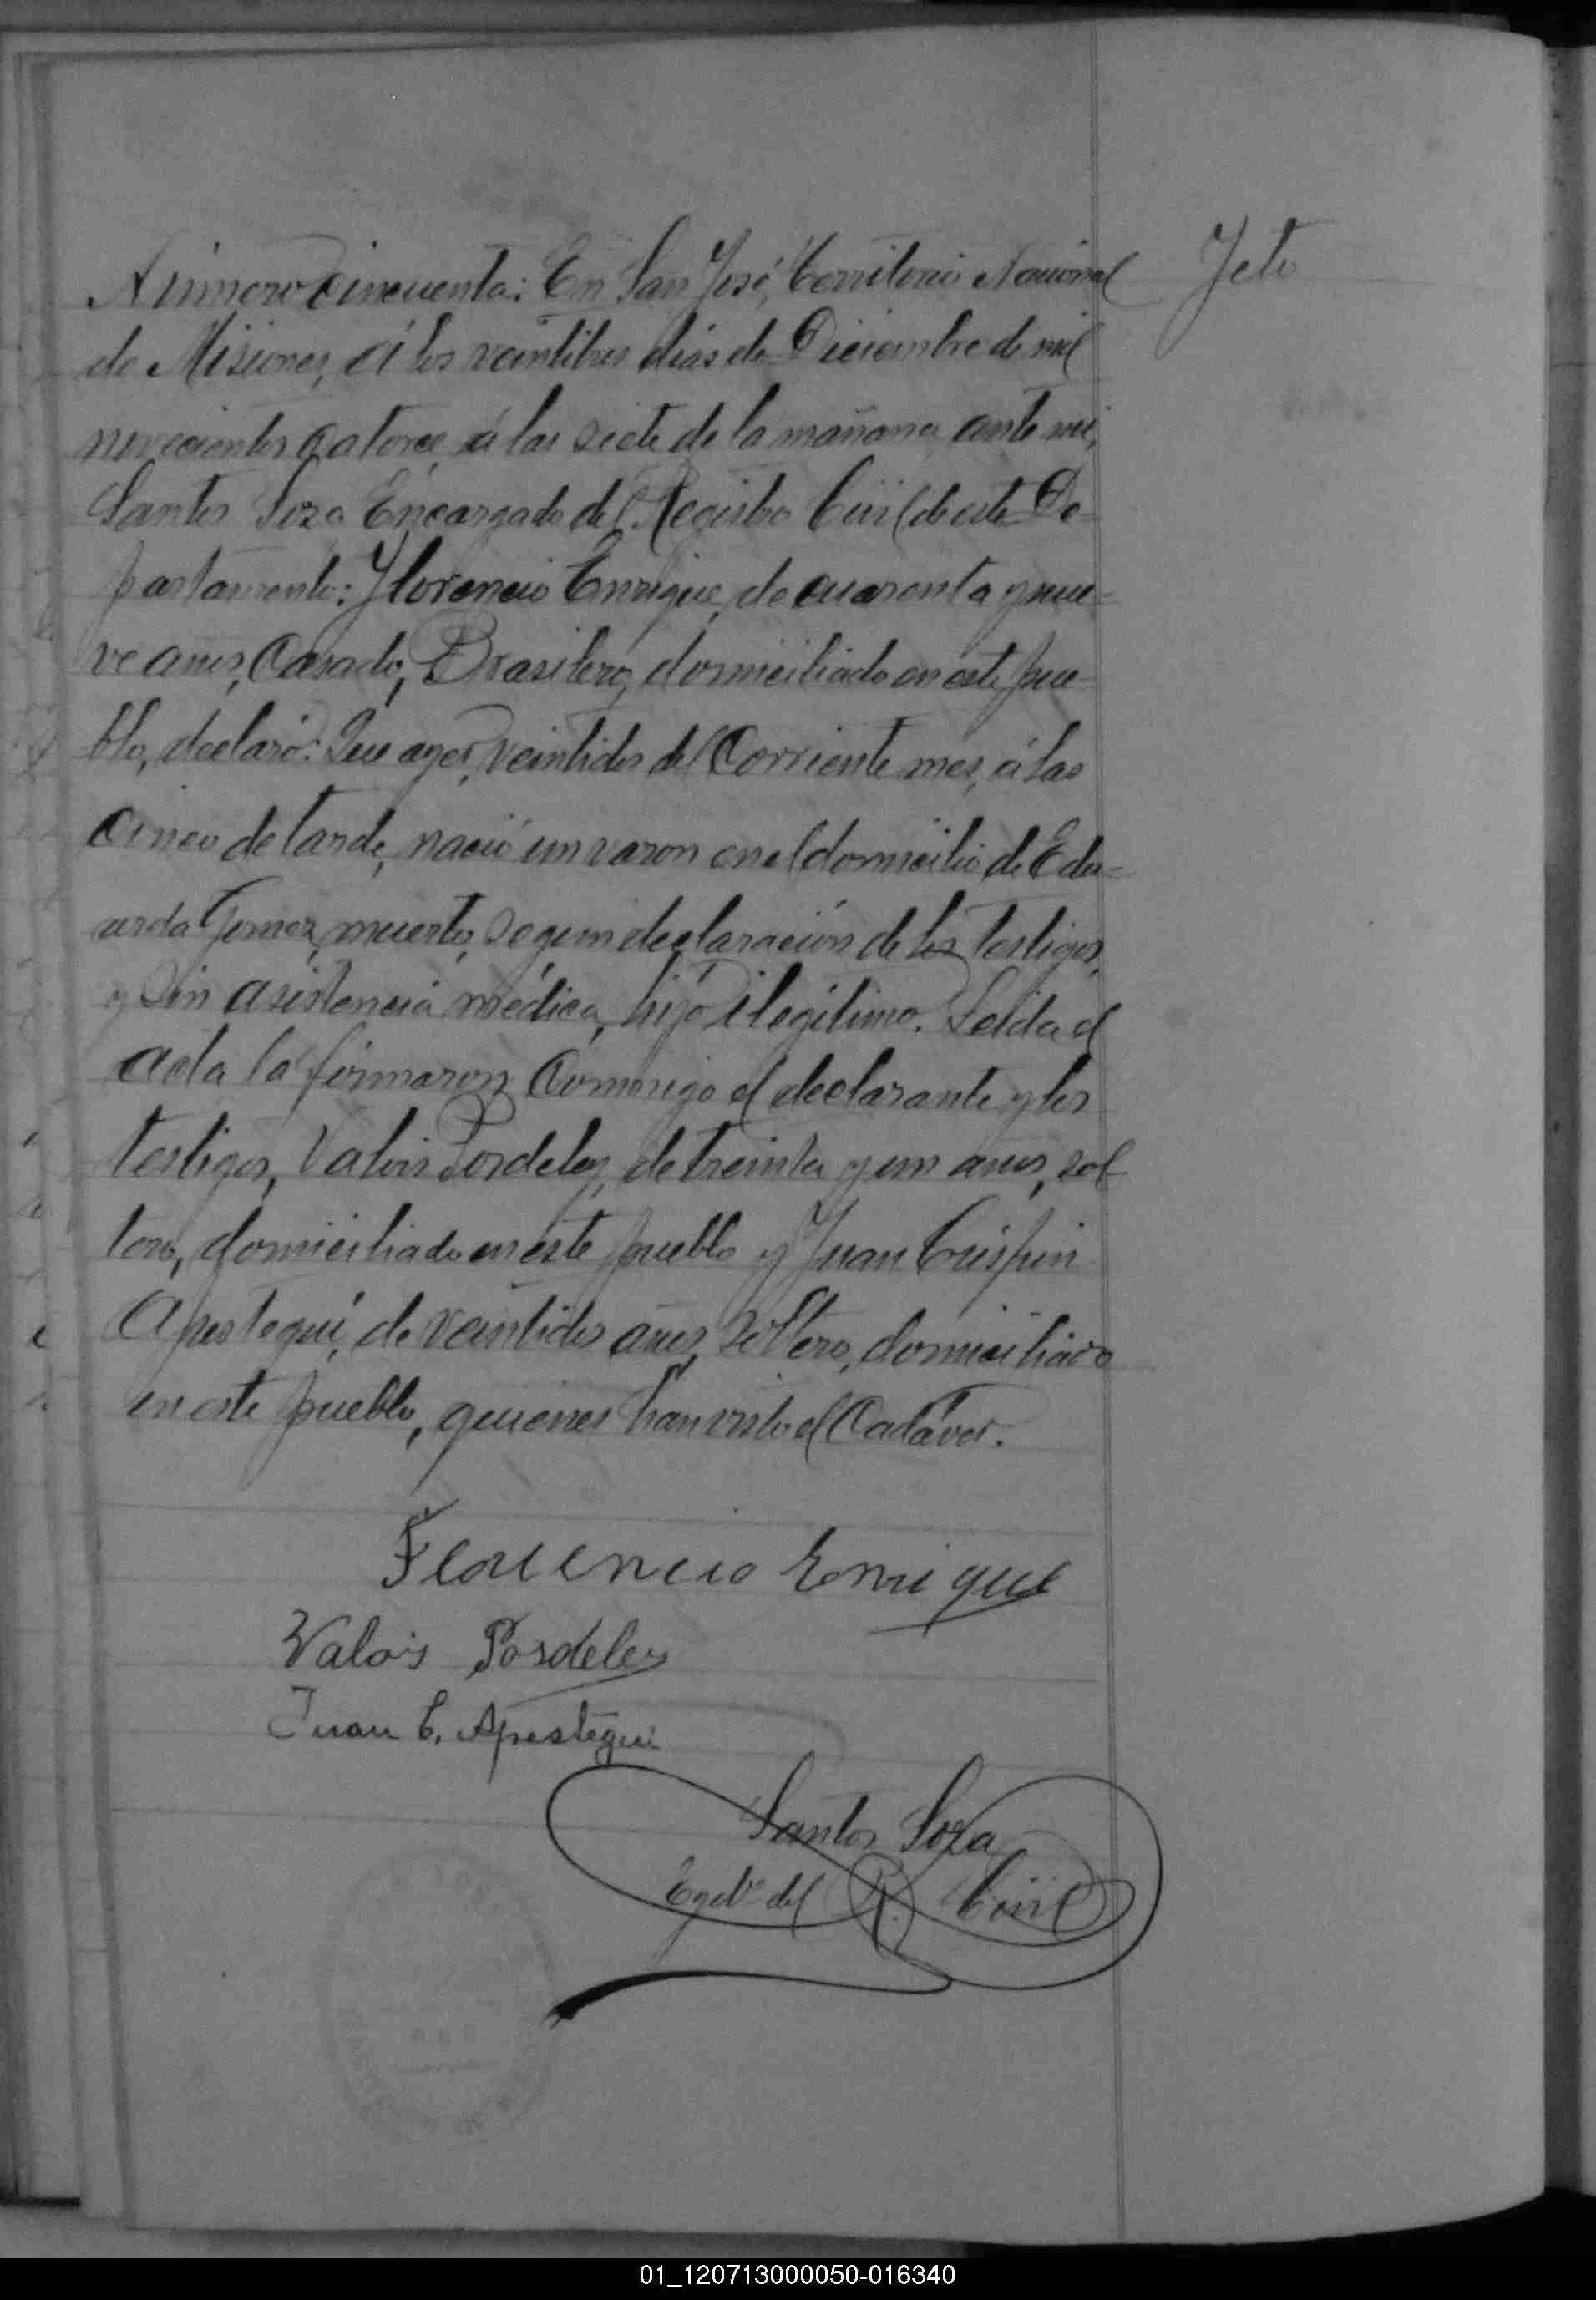 Número cincuenta: En San José, Territorio Nacional
de Misiones, á los veintitres dias de Diciembre de mil
novecientos catorce, á las siete de la mañana, ante mi,
Santos Soza Encargado del Registro Civil de este De-
partamento: Florencio Enrique, de cuarenta y nue-
ve años, Casado, Brasilero, domiciliado en este pue-
blo, declaró: Que ayer, veintidos del Corriente mes, á las
cinco de tarde, nació un varon en el domicilio de Edu-
arda Gomez, muerto, segun declaración de los testigos,
y sin asistencia médica, hijo ilegítimo. Leida el
acta la firmaron Conmigo el declarante y los
testigos, Valois Posdeley, de treinta y un años, sol
tero, domiciliado en este pueblo y Juan Crispin
Apestegui, de veintidos años, Soltero, domiciliado
en este pueblo, quienes han visto el Cadáver.
Feto
Florencio Enrique
Valois Posdeley
Juan C. Apestegui
Santos Soza
Egdo del R. Civil
01_120713000050-016340